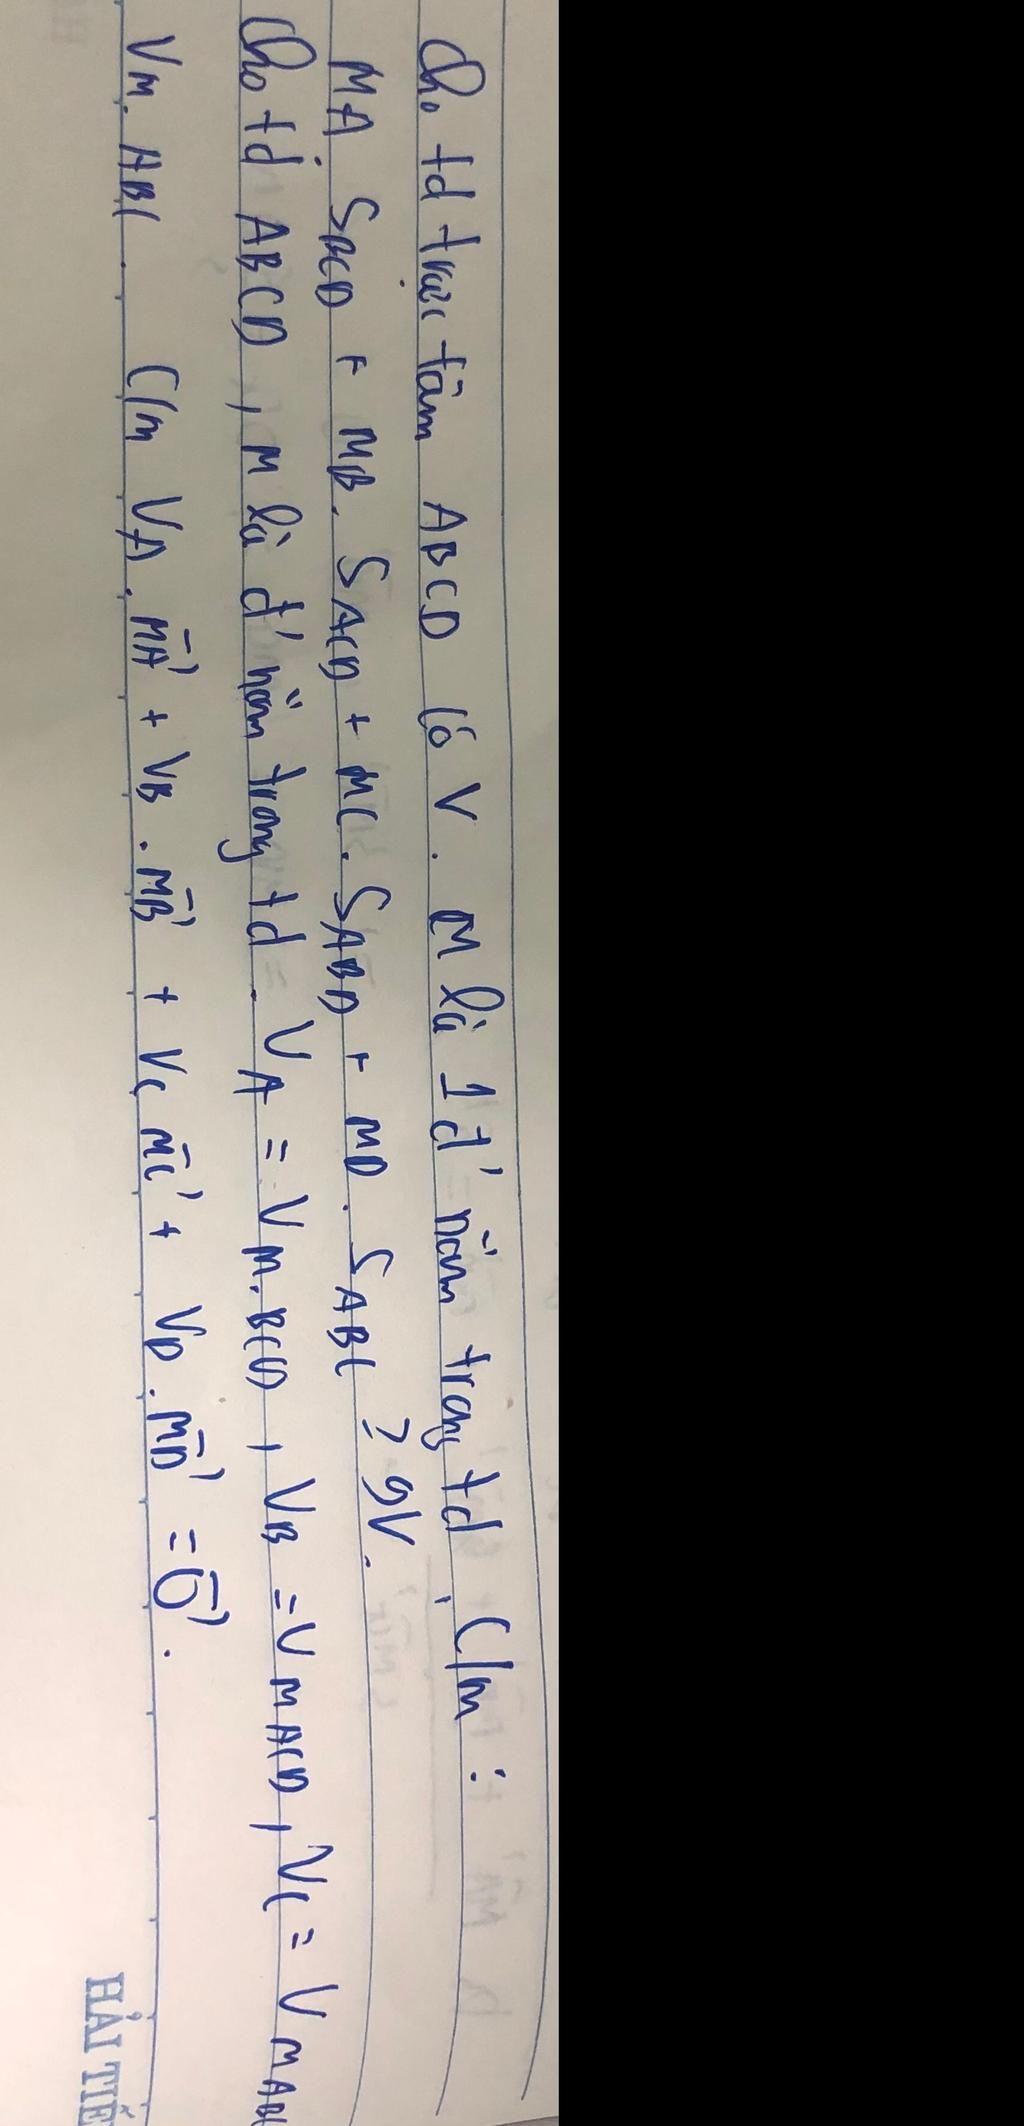 Cho td trực tâm ABCD có V. M là 1 đ' nằm trong td, C/m:
MA S_BCD + MB. S_ACD + MC. S_ABD + MD. S_ABC ≥ 9V.
Cho td ABCD, M là đ' nằm trong td. V_A = V_M.BCD, V_B = V_MACD, V_C = V_MAB
V_M.ABC. C/m V_A. MA + V_B. MB + V_C MC + V_D. MD = 0.
HẢI TIẾ